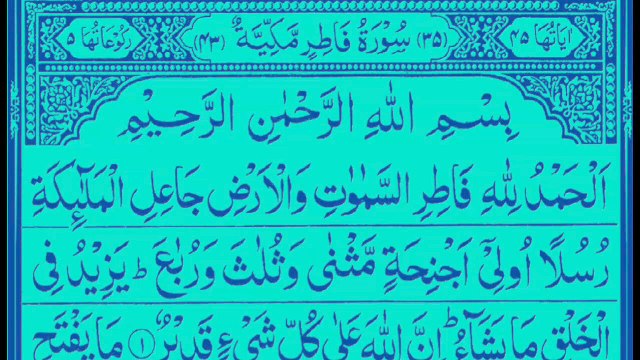 اٰيَاتُهَا ٤٥ (٣٥) سُوْرَةُ فَاطِرٍ مَّكِّيَّةٌ (٤٣) رُكُوْعَاتُهَا ٥
بِسْمِ اللّٰهِ الرَّحْمٰنِ الرَّحِيْمِ
اَلْحَمْدُ لِلّٰهِ فَاطِرِ السَّمٰوٰتِ وَالْاَرْضِ جَاعِلِ الْمَلٰٓئِكَةِ
رُسُلًا اُولِىْٓ اَجْنِحَةٍ مَّثْنٰى وَثُلٰثَ وَرُبٰعَ ؕ يَزِيْدُ فِى
الْخَلْقِ مَا يَشَآءُ ؕ اِنَّ اللّٰهَ عَلٰى كُلِّ شَىْءٍ قَدِيْرٌ ۝١ مَا يَفْتَحِ